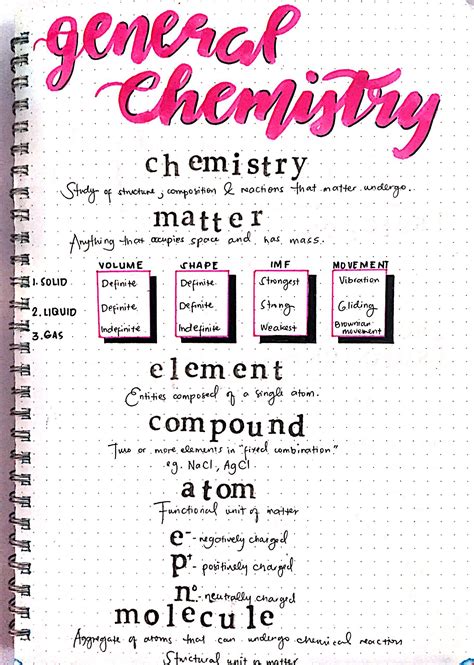 general
Chemistry
chemistry
Study of structure, composition & reactions that matter undergo.
matter
Anything that occupies space and has mass.
VOLUME SHAPE IMF MOVEMENT
1. SOLID Definite Definite Strongest Vibration
2. LIQUID Definite Definite Strong Gliding
3. GAS Indefinite Indefinite Weakest Brownian movement
element
Entities composed of a single atom.
compound
Two or more elements in "fixed combination"
eg. NaCl, AgCl
atom
Functional unit of matter
e⁻ - negatively charged
p⁺ - positively charged
n⁰ - neutrally charged
molecule
Aggregate of atoms that can undergo chemical reaction
Structural unit of matter